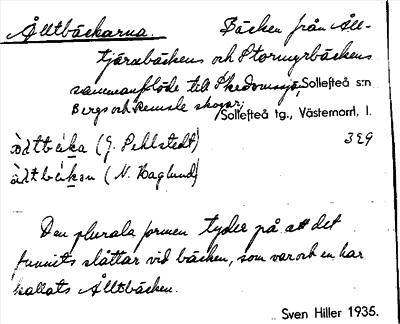 Ålltbäckarna. Bäcken från Åll-
tjärnbäckens och Stormyrbäckens
sammanflöde till Skedomssjö, Sollefteå s:n
Bergs och Remsle skogar; Sollefteå tg., Västernorrl. l.
(G. Sehlstedt) 329
(N. Haglund)
Den plurala formen tyder på att det
funnits slåttar vid bäcken, som var och en har
kallats Ålltbäcken.
Sven Hiller 1935.